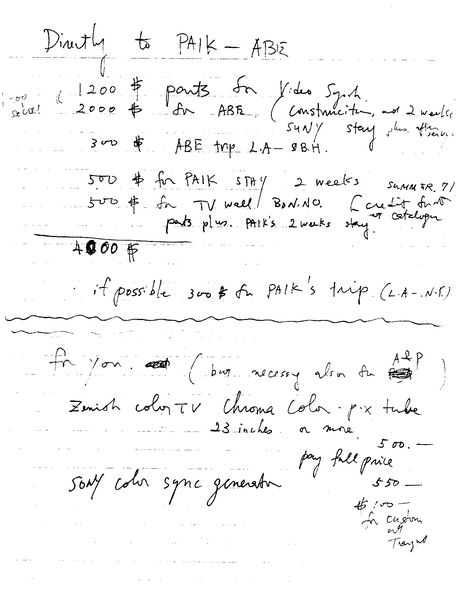 Directly to PAIK - ABE
1200 $ parts for Video Synth.
2000 $ for ABE (Construction, and 2 weeks
SUNY stay plus
300 $ ABE trip L.A - BBH.
500 $ for PAIK STAY 2 weeks SUMMER. 71
500 $ for TV wall / B&N.NO. [credit front
or catalogue
parts plus. PAIK's 2 weeks stay.
4000 $
· if possible 300 $ for PAIK's trip (L.A-.N.Y.)
for you. (but necessy also for A&P)
Zenith color TV Chroma Color · p.x tube
23 inches or more
500.—
pay full price
SONY color sync generator 550 —
$100 —
for custom